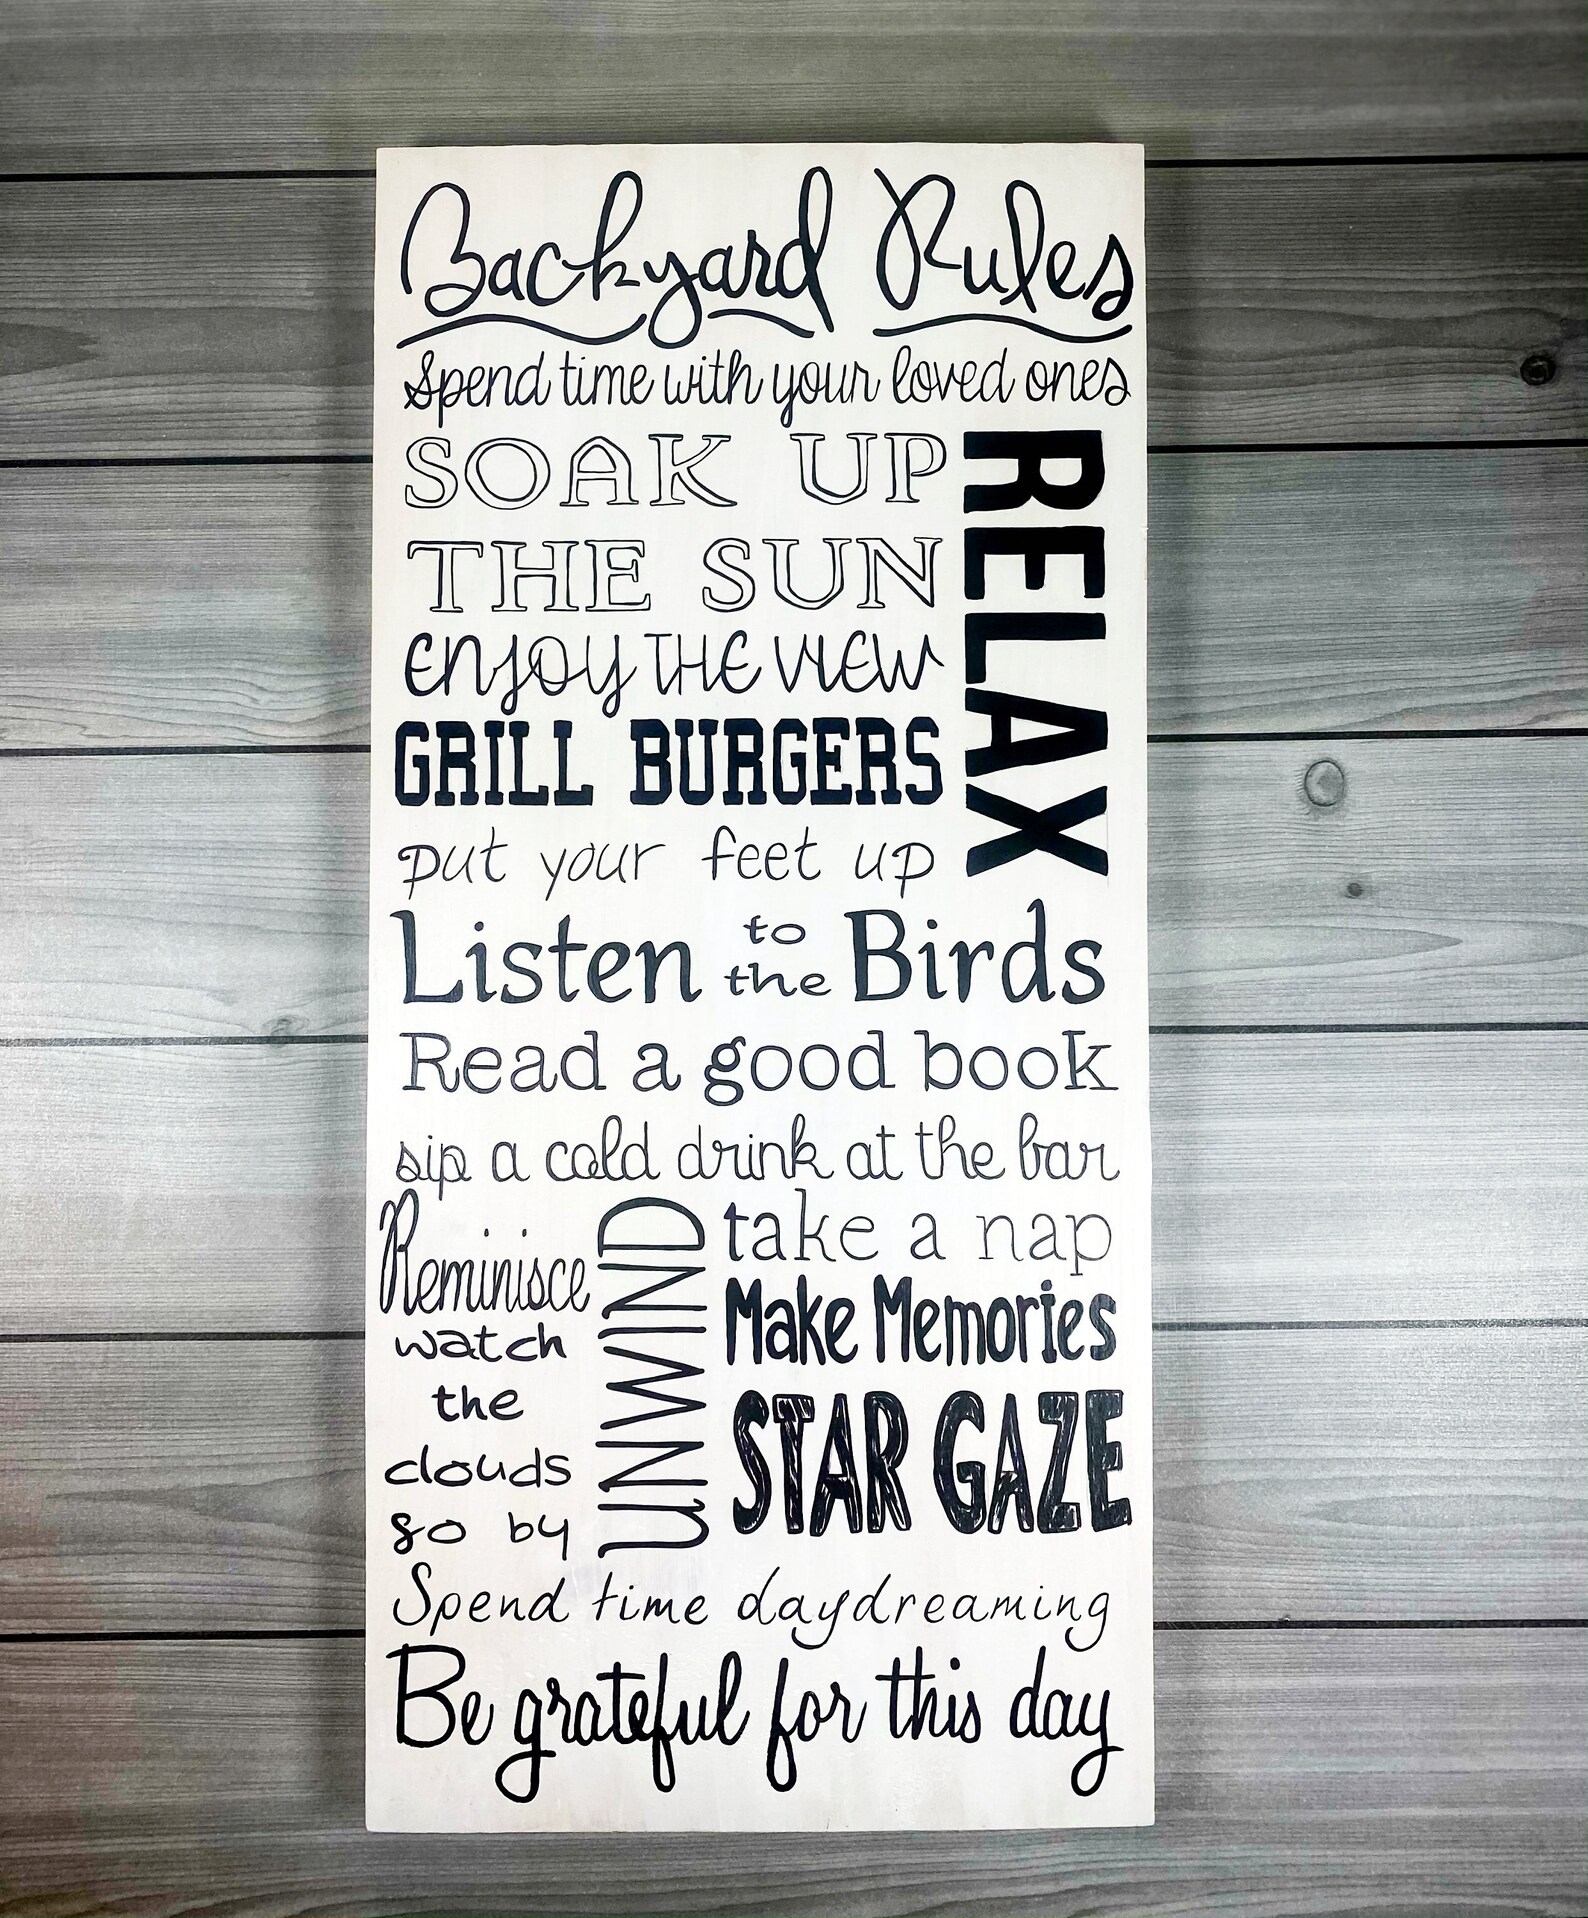 Backyard Rules
Spend time with your loved ones
SOAK UP
THE SUN
RELAX
enjoy THE VIEW
GRILL BURGERS
put your feet up
Listen to the Birds
Read a good book
sip a cold drink at the bar
Reminisce
watch
the
clouds
go by
UNWIND
take a nap
Make Memories
STAR GAZE
Spend time daydreaming
Be grateful for this day